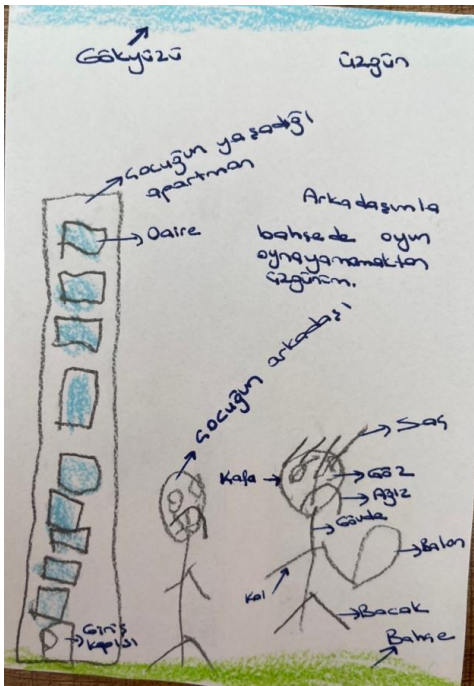 Gökyüzü
üzgün
Çocuğun yaşadığı
apartman
Daire
Arkadaşımla
bahçede oyun
oynayamamaktan
üzgünüm.
Çocuğun arkadaşı
Saç
Kafa
Göz
Ağız
Gövde
Balon
Kol
Bacak
Giriş
Kapısı
Bahçe